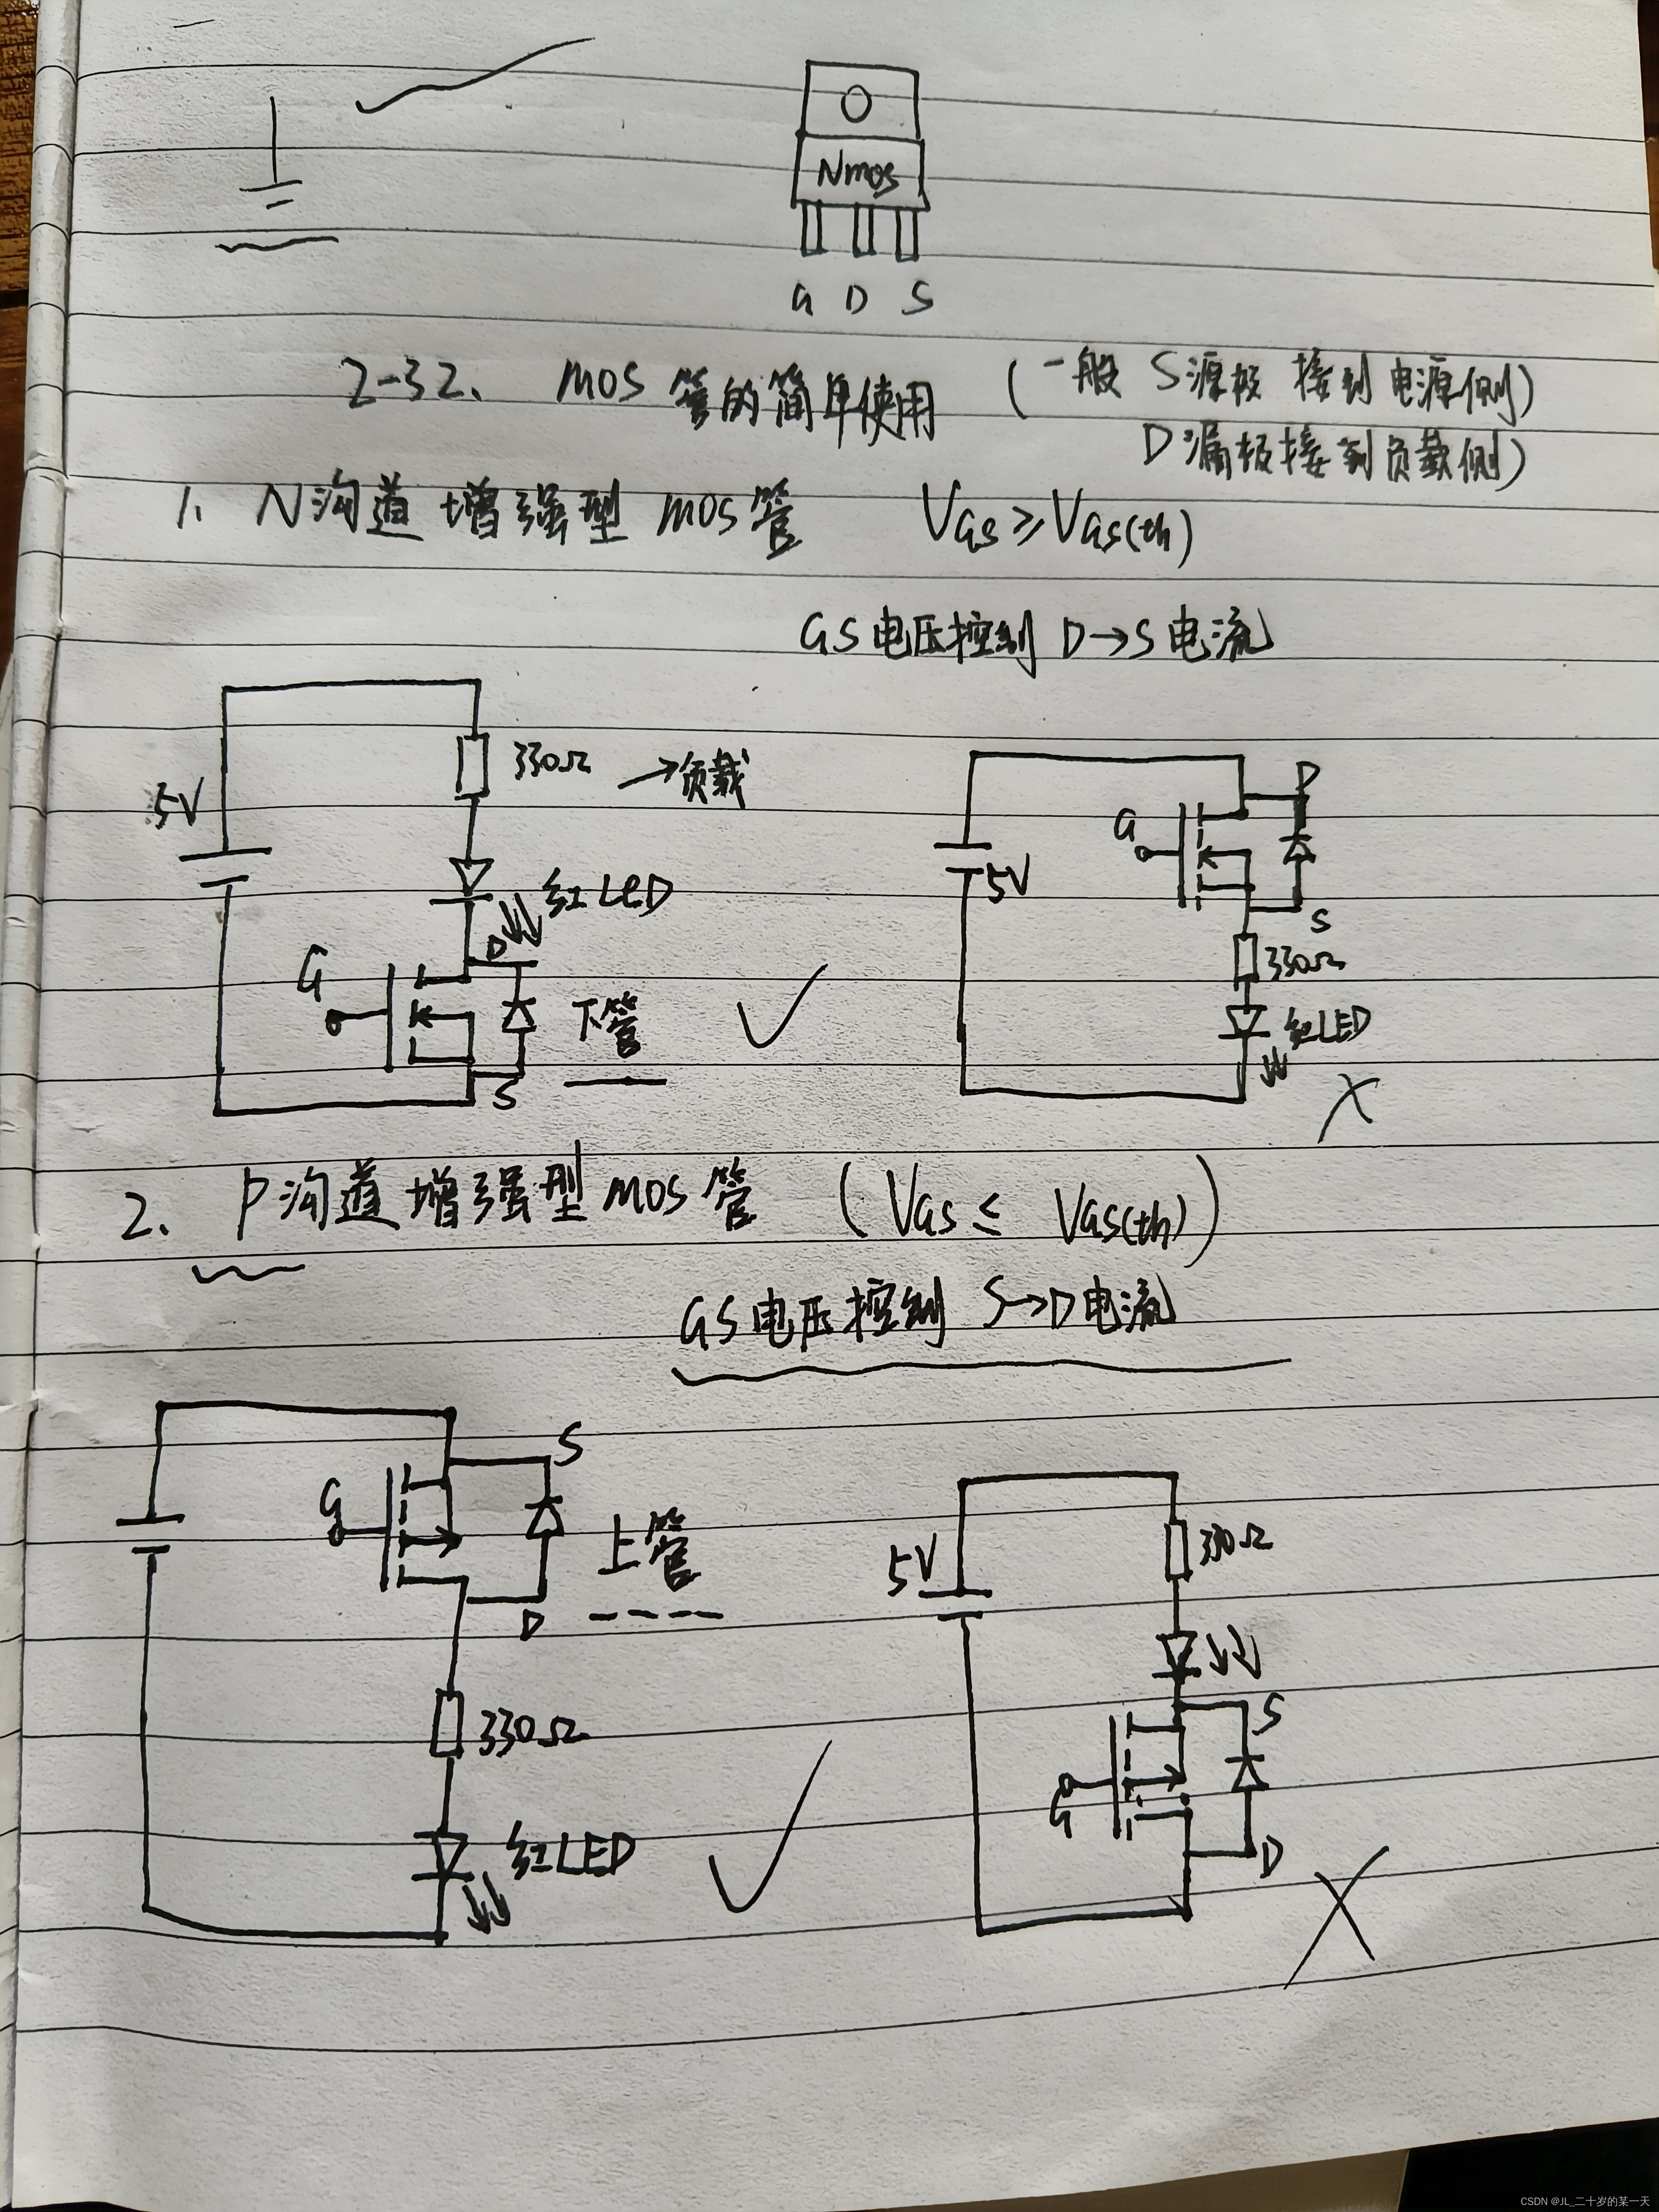 Nmos
G D S
2-32、 MOS管的简单使用 (一般 S源极 接到电源侧)
D漏极接到负载侧)
1、N沟道增强型 MOS管 VGS≥VGS(th)
GS电压控制 D→S 电流
5V
330Ω →负载
红LED
D
G
下管
S
D
G
5V
S
330Ω
红LED
2、P沟道增强型MOS管 (VGS≤ VGS(th))
GS电压控制 S→D电流
S
G
上管
D
330Ω
红LED
5V
330Ω
S
G
D
CSDN @JL_二十岁的某一天